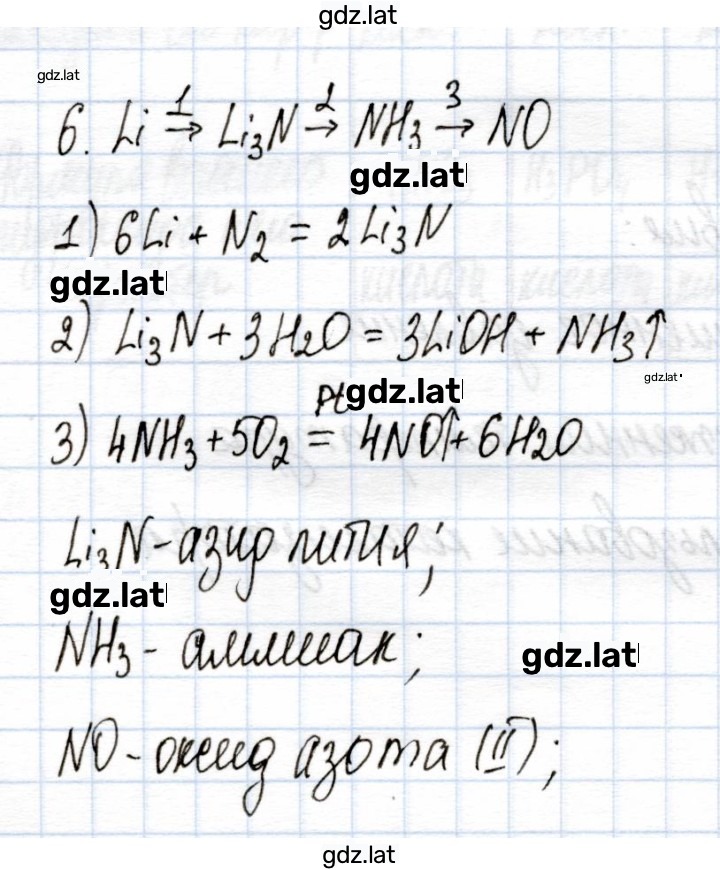 gdz.lat
gdz.lat
6. Li 1→ Li₃N 2→ NH₃ 3→ NO
gdz.lat
1) 6Li + N₂ = 2Li₃N
gdz.lat
2) Li₃N + 3H₂O = 3LiOH + NH₃↑
gdz.lat
Pt gdz.lat
3) 4NH₃ + 5O₂ = 4NO↑ + 6H₂O
Li₃N - азид лития;
gdz.lat
NH₃ - аммиак;
gdz.lat
NO - оксид азота (II);
gdz.lat